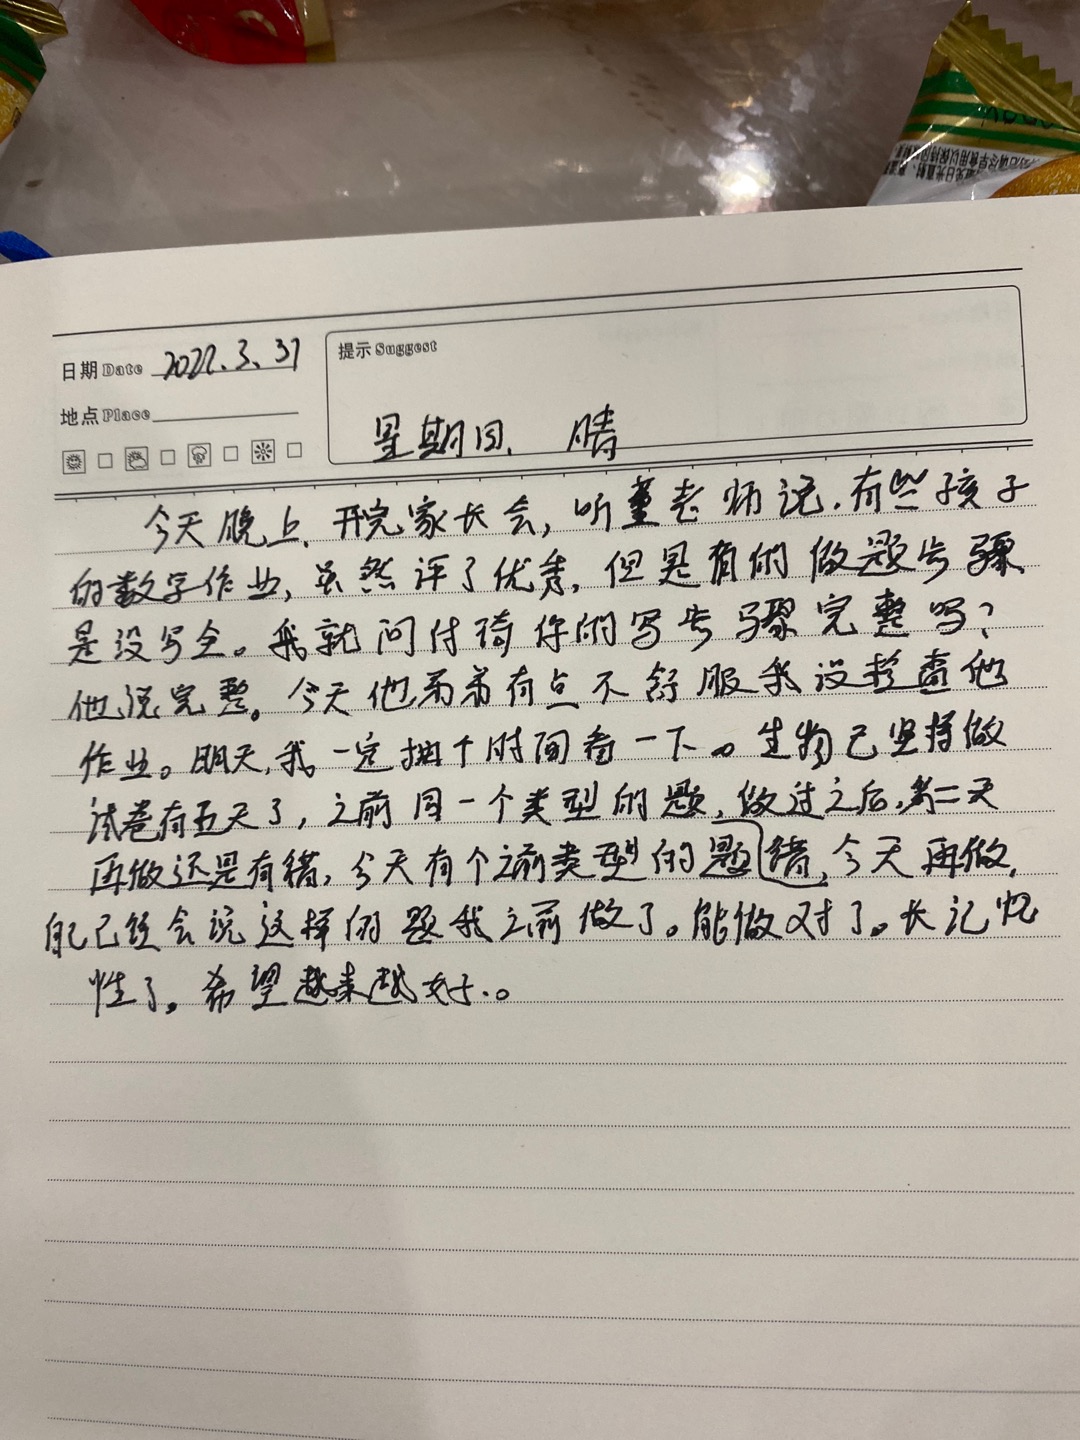 日期 Date 2022.3.31
提示 Suggest
地点 Place
星期四. 晴
今天晚上、开完家长会，听董老师说.有些孩子
的数学作业，虽然评了优秀，但是有的做题步骤
是没写全。我就问付琦你的写步骤完整吗？
他说完整。今天他弟弟有点不舒服我没检查他
作业。明天，我一定抽个时间看一下。生物已坚持做
试卷有五天了，之前同一个类型的题，做过之后，第二天
再做还是有错，今天有个之前类型的题错，今天再做，
自己已经会说这样的题我之前做了。能做对了。长记忆
性了。希望越来越好.。